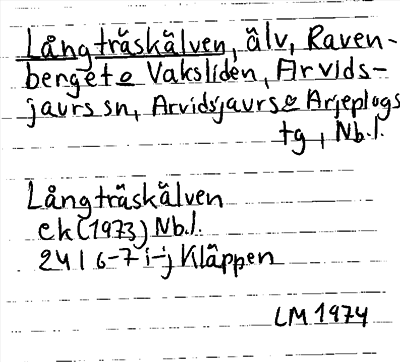 Långträskälven, älv, Raven-
berget o Vaksliden, Arvids-
jaurs sn, Arvidsjaurs o Arjeplogs
tg, Nb.l.
Långträskälven
ek (1973) Nb.l.
24 I 6-7 i-j Kläppen
LM 1974